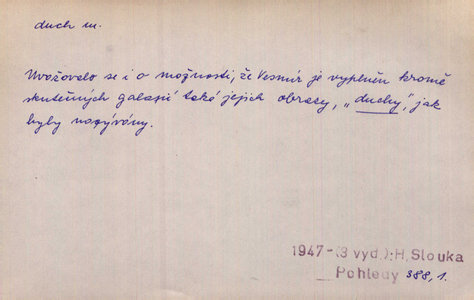 duch m.
Uvažovalo se i o možnosti, že Vesmír je vyplněn kromě
skutečných galaxií také jejich obrazy, „duchy", jak
byly nazývány.
1947-(3 vyd.):H.Slouka
Pohledy 388,1.